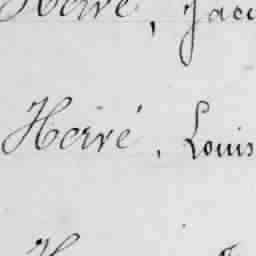 Hervé, Jac
Hervé, Louis